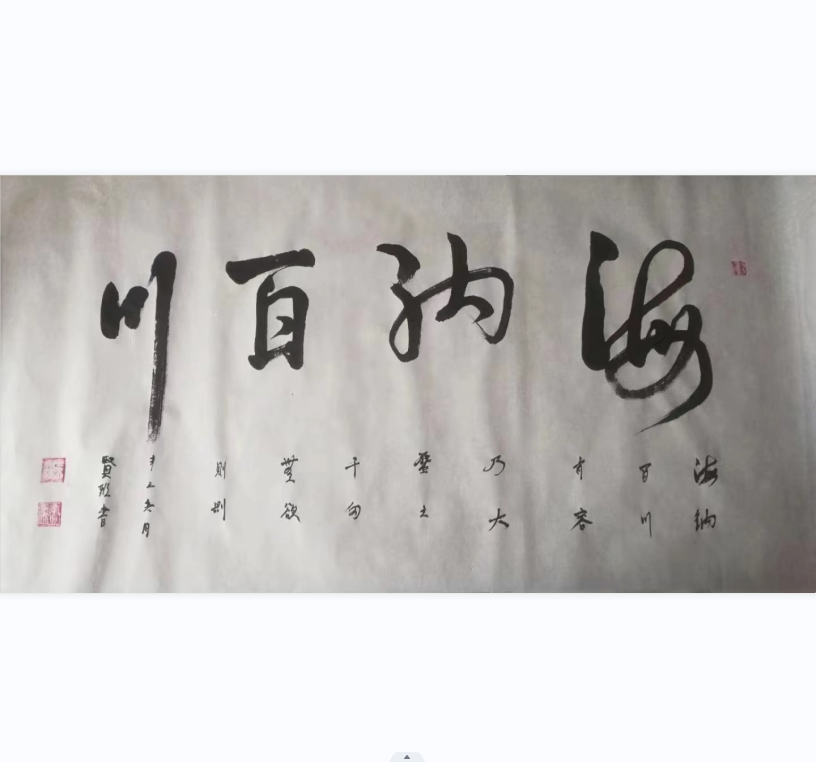 海納百川
海納
百川
有容
乃大
壁立
千仞
無欲
則剛
辛丑冬月
賢 書